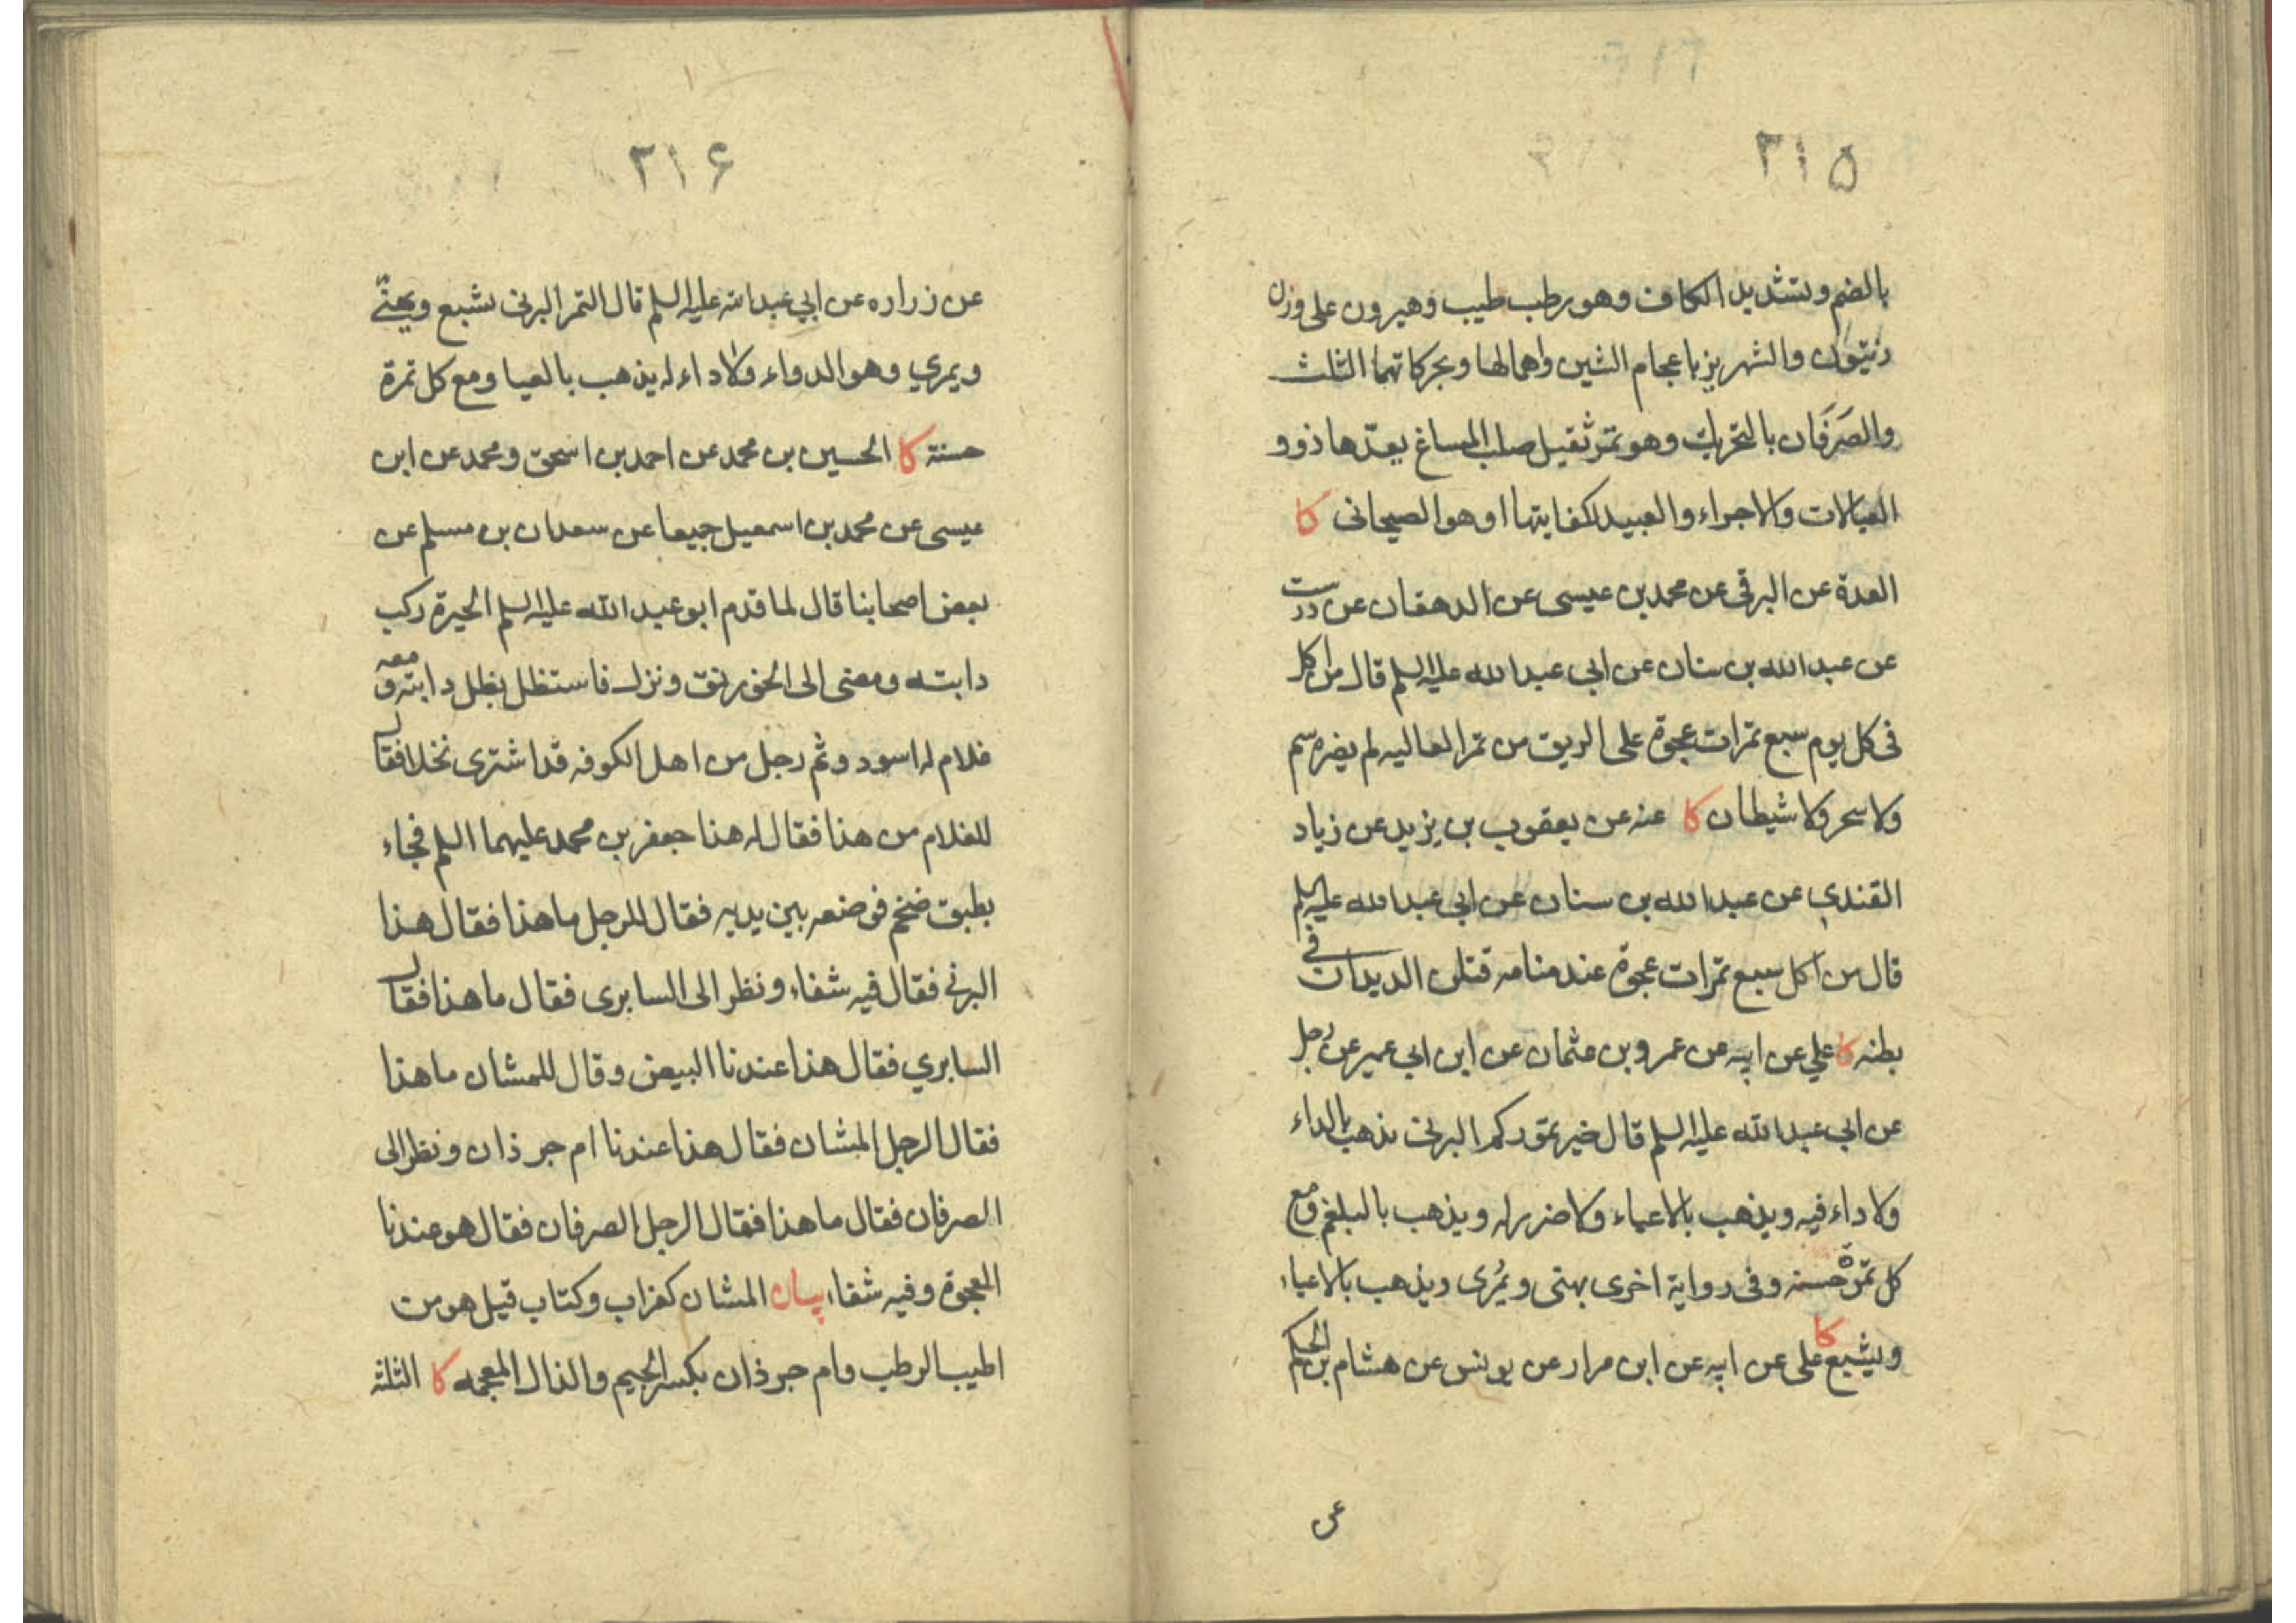 ٢١٥
بالضم وتشديد الكاف وهو رطب طيب وهيرون على وزن
زيتون والشهريز باعجام الشين واهمالها وبحركاتهما الثلث
والصَرَفَان بالتحريك وهو تمر ثقيل صلب المساغ يعدّها ذوو
العيالات والاجراء والعبيد لكفايتها او هو الصيحانى كا
العدة عن البرقى عن محمد بن عيسى عن الدهقان عن درست
عن عبدالله بن سنان عن ابي عبدالله عليه السلم قال من اكل
فى كل يوم سبع تمرات عجوة على الريق من تمر العاليه لم يضره سم
ولا سحر ولا شيطان كا عنه عن يعقوب بن يزيد عن زياد
القندي عن عبدالله بن سنان عن ابي عبدالله عليه السلم
قال من اكل سبع تمرات عجوة عند منامه قتلن الديدان فى
بطنه كا علي عن ابيه عن عمرو بن عثمان عن ابن ابي عمير عن رجل
عن ابي عبدالله عليه السلم قال خير تموركم البرنى يذهب بالداء
ولا داء فيه ويذهب بالاعياء ولا ضرر له ويذهب بالبلغم ومع
كل تمرة حسنه وفى رواية اخرى يهنى ويُمرى ويذهب بالاعياء
ويشبع كا على عن ابيه عن ابن مرار عن يونس عن هشام بن الحكم
عن
٢١۶
عن زراره عن ابي عبدالله عليه السلم قال التمر البرنى يشبع ويهنّئ
ويمري وهو الدواء ولا داء له يذهب بالعيا ومع كل تمرة
حسنة كا الحسين بن محمد عن احمد بن اسحق ومحمد عن ابن
عيسى عن محمد بن اسمعيل جميعا عن سعدان بن مسلم عن
بعض اصحابنا قال لما قدم ابو عبدالله عليه السلم الحيرة ركب
دابته ومضى الى الخورنق ونزل فاستظل بظل دابته ومعه
غلام له اسود وثم رجل من اهل الكوفه قد اشترى نخلا فقال
للغلام من هذا فقال له هذا جعفر بن محمد عليهما السلم فجاء
بطبق ضخم فوضعه بين يديه فقال للرجل ما هذا فقال هذا
البرنى فقال فيه شفاء ونظر الى السابرى فقال ما هذا فقال
السابري فقال هذا عندنا البيض وقال للمشان ما هذا
فقال الرجل المشان فقال هذا عندنا ام جرذان ونظر الى
الصرفان فقال ما هذا فقال الرجل الصرفان فقال هو عندنا
العجوة وفيه شفاء بيان المشان كغراب وكتاب قيل هو من
اطيب الرطب وام جرذان بكسر الجيم والذال المعجمه كا الثلثه